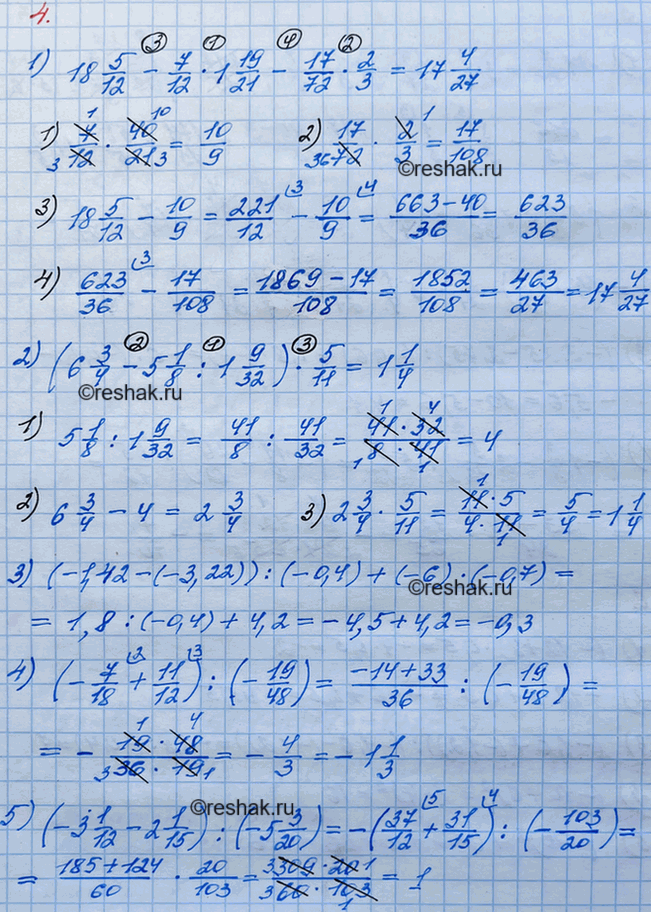 4.
1) 18 5/12 - 7/12 · 1 19/21 - 17/72 · 2/3 = 17 4/27
1) 7/12 · 40/21 = 10/9 2) 17/72 · 2/3 = 17/108
©reshak.ru
3) 18 5/12 - 10/9 = 221/12 - 10/9 = (663-40)/36 = 623/36
4) 623/36 - 17/108 = (1869-17)/108 = 1852/108 = 463/27 = 17 4/27
2) (6 3/4 - 5 1/8 : 1 9/32) · 5/11 = 1 1/4
©reshak.ru
1) 5 1/8 : 1 9/32 = 41/8 : 41/32 = (41·32)/(8·41) = 4
2) 6 3/4 - 4 = 2 3/4 3) 2 3/4 · 5/11 = (11·5)/(4·11) = 5/4 = 1 1/4
3) (-1,42-(-3,22)) : (-0,4) + (-6) · (-0,7) =
©reshak.ru
= 1,8 : (-0,4) + 4,2 = -4,5 + 4,2 = -0,3
4) (-7/18 + 11/12) : (-19/48) = (-14+33)/36 : (-19/48) =
= - (19·48)/(36·19) = - 4/3 = -1 1/3
©reshak.ru
5) (-3 1/12 - 2 1/15) : (-5 3/20) = -(37/12 + 31/15) : (-103/20) =
= (185+124)/60 · 20/103 = (309·20)/(60·103) = 1